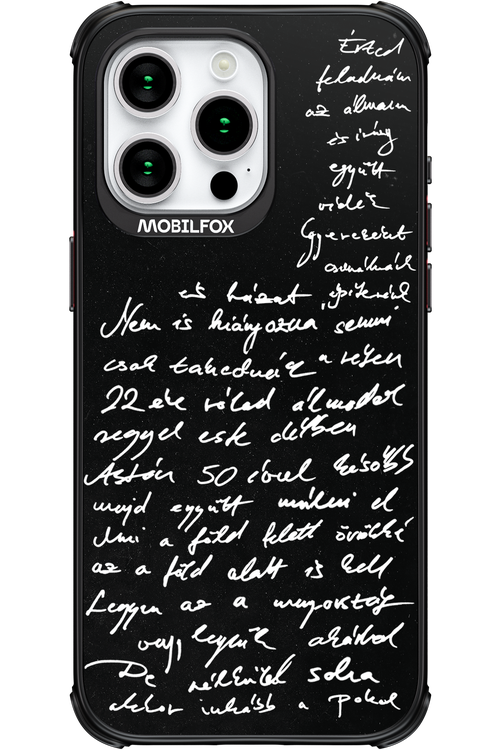 MOBILFOX
Érted
feladnám
az álmaim
és így
együtt
veled
Gyerekeket
csinálnánk
és házat építenénk
Nem is hiányozna semmi
csak takednék a réten
22 éve rólad álmodok
reggel este délben
Aztán 50 évvel később
majd együtt múlni el
Ami a föld felett örökké
az a föld alatt is kell
Legyen az a mennyország
vagy legyünk akárhol
De nélküled soha
akkor inkább a pokol